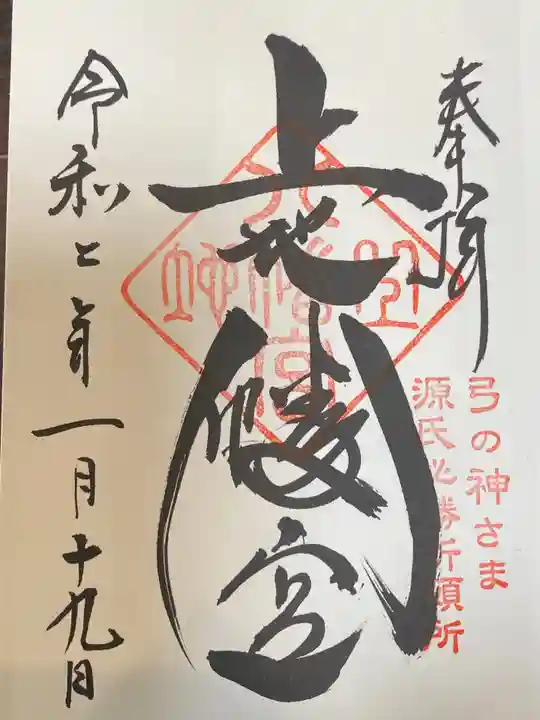 奉拝
弓の神さま
源氏必勝祈願所
上地八幡宮
上地八幡宮
令和二年一月十九日